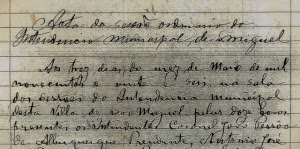 Acta da sessão ordinaria do
Intendencia Municipal de S. Miguel
Aos trez dias do mez de Maio de mil
novecentos e vinte e seis, na sala
das sessões da Intendencia Municipal
desta Villa de São Miguel, pelas doze horas
presentes os intendentes Coronel João Pessôa
de Albuquerque, Presidente, Antonio José